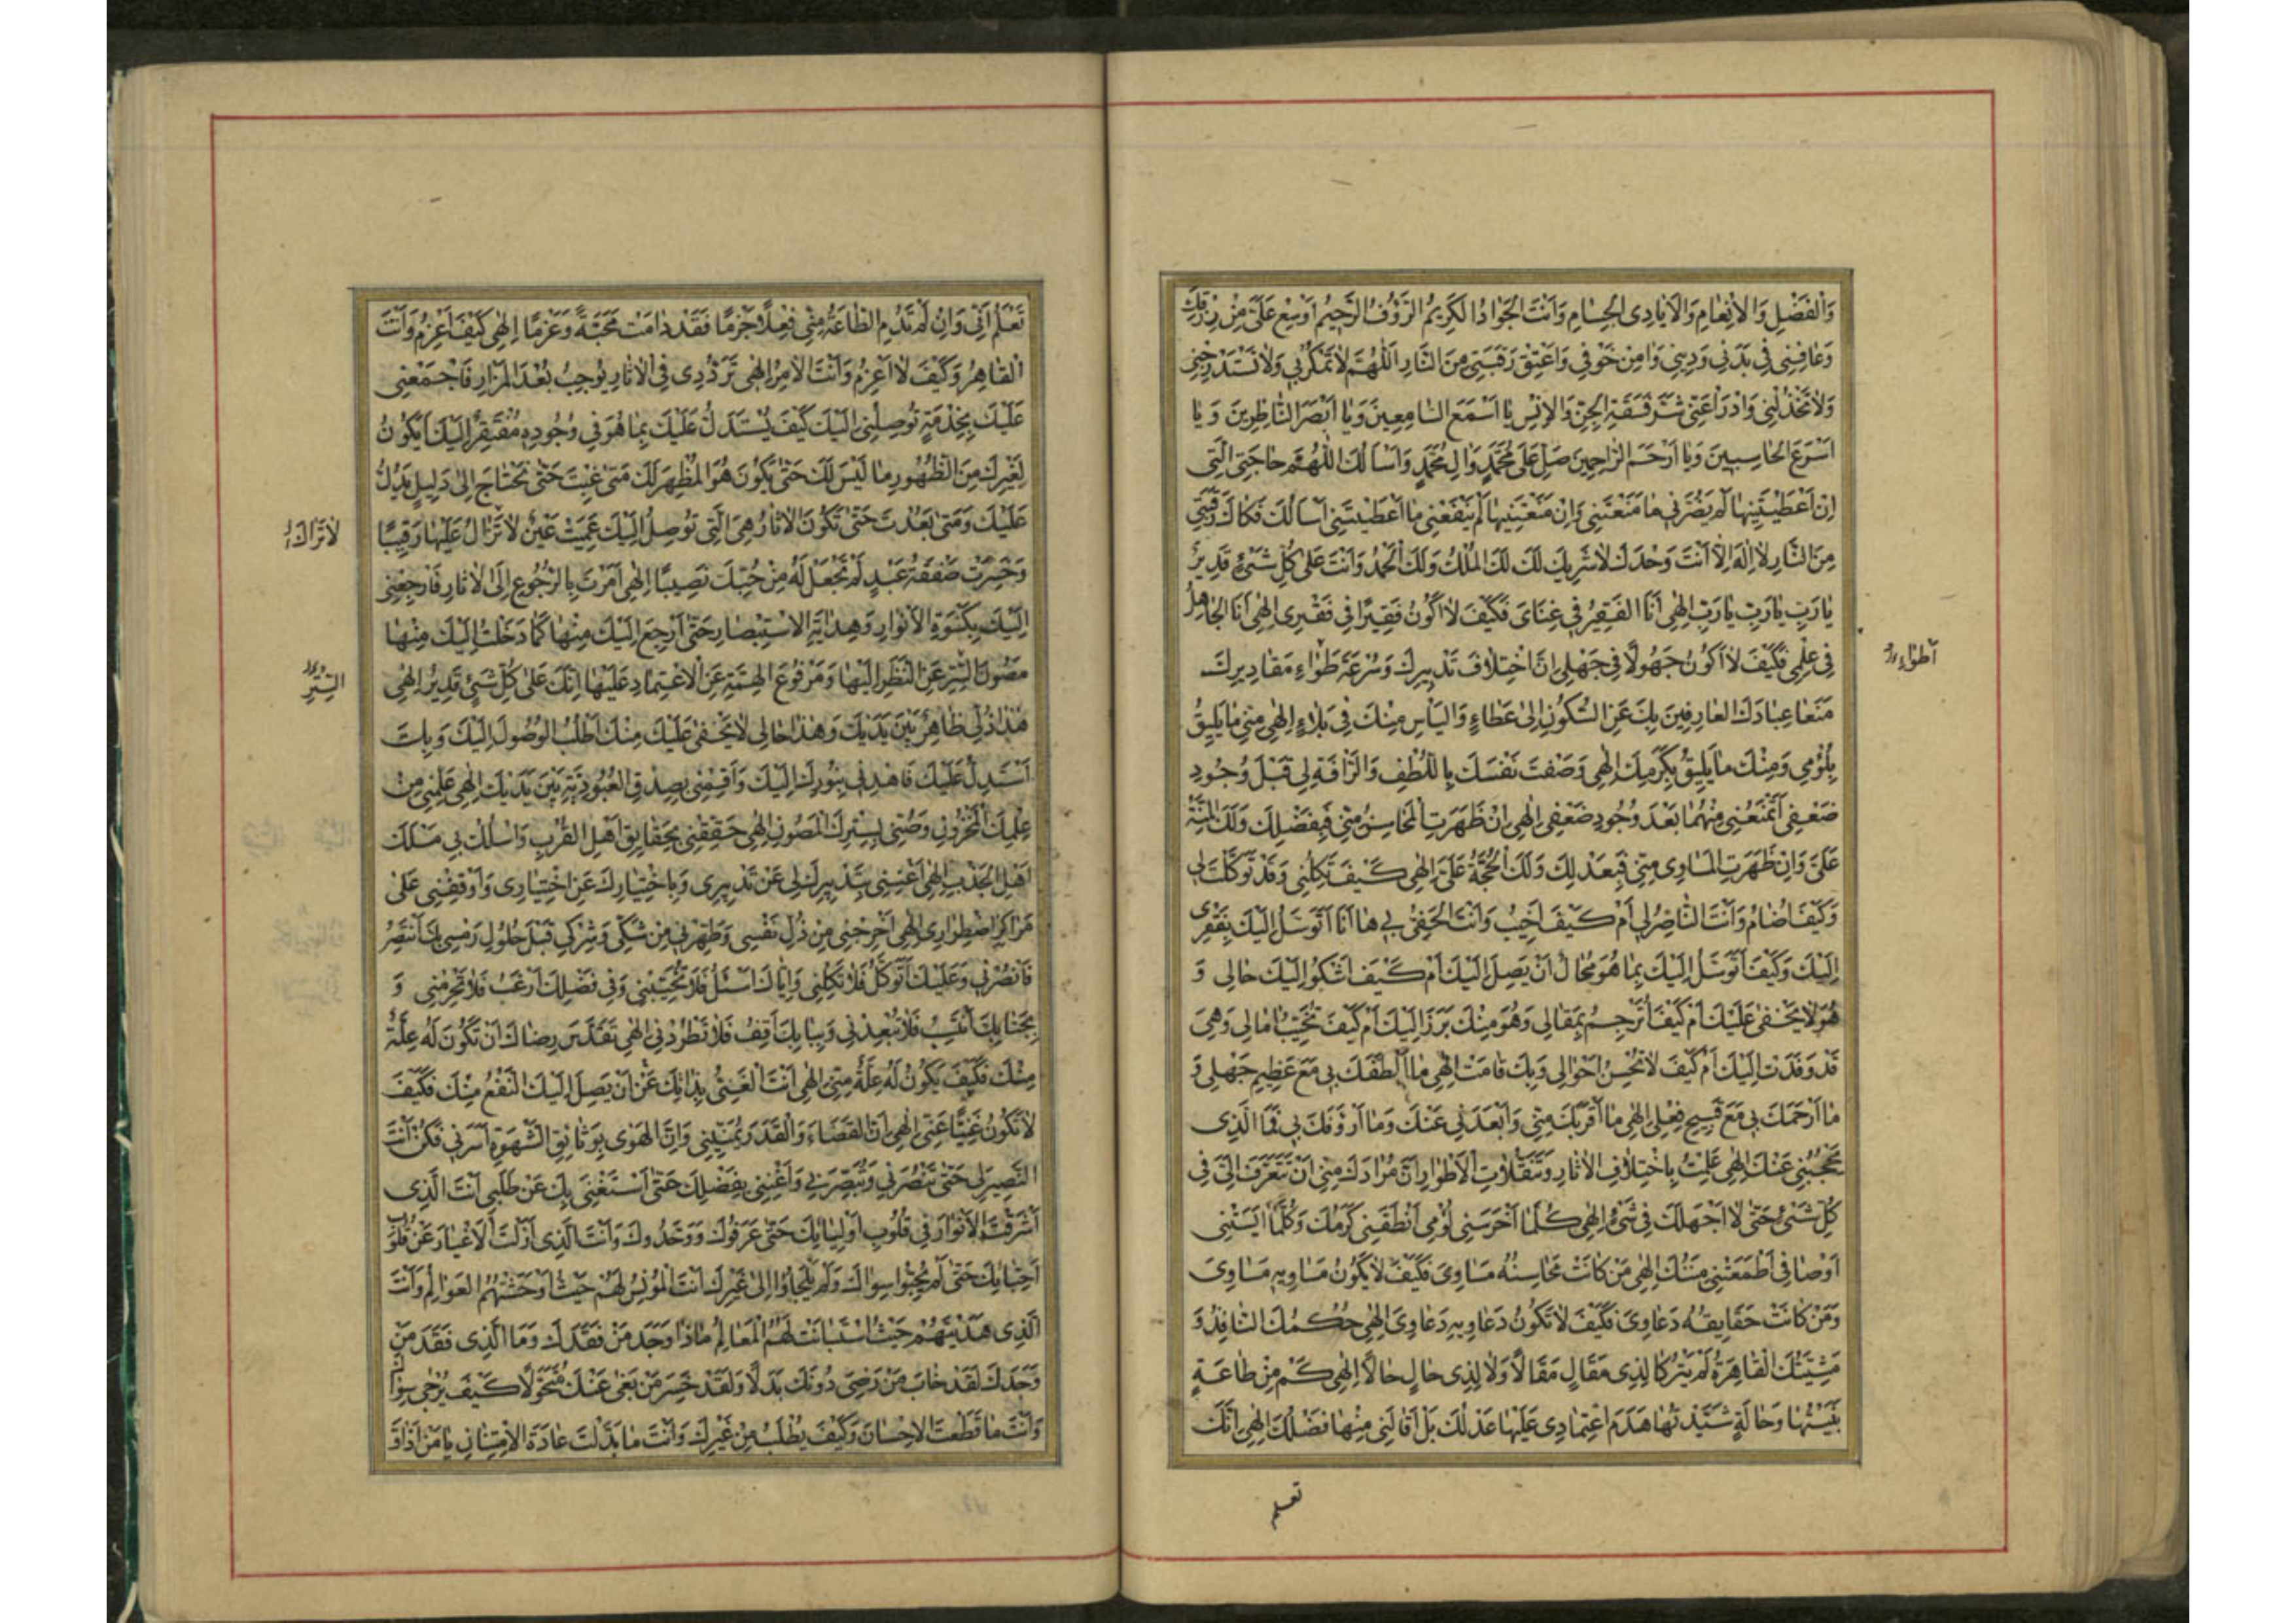 وَالْفَضْلِ وَالْاِنْعَامِ وَالْاَيَادِى الْجِسَامِ وَاَنْتَ الْجَوَادُ الْكَرِيمُ الرَّؤُفُ الرَّحِيمُ اَوْسِعْ عَلَىَّ مِنْ رِزْقِكَ
وَعَافِنِى فِى بَدَنِى وَدِينِى وَامِنْ خَوْفِى وَاَعْتِقْ رَقَبَتِى مِنَ النَّارِ اَللّٰهُمَّ لَا تَمْكُرْ بِى وَلَا تَسْتَدْرِجْنِى
وَلَا تَخْذُلْنِى وَادْرَأْ عَنِّى شَرَّ فَسَقَةِ الْجِنِّ وَالْاِنْسِ يَا اَسْمَعَ السَّامِعِينَ وَيَا اَبْصَرَ النَّاظِرِينَ وَ يَا
اَسْرَعَ الْحَاسِبِينَ وَيَا اَرْحَمَ الرَّاحِمِينَ صَلِّ عَلَى مُحَمَّدٍ وَالِ مُحَمَّدٍ وَاَسْاَلُكَ اللّٰهُمَّ حَاجَتِىَ الَّتِى
اِنْ اَعْطَيْتَنِيهَا لَمْ يَضُرَّنِى مَا مَنَعْتَنِى وَاِنْ مَنَعْتَنِيهَا لَمْ يَنْفَعْنِى مَا اَعْطَيْتَنِى اَسْاَلُكَ فَكَاكَ رَقَبَتِى
مِنَ النَّارِ لَا اِلٰهَ اِلَّا اَنْتَ وَحْدَكَ لَا شَرِيكَ لَكَ لَكَ الْمُلْكُ وَلَكَ الْحَمْدُ وَاَنْتَ عَلٰى كُلِّ شَىْءٍ قَدِيرٌ
يَا رَبِّ يَا رَبِّ يَا رَبِّ اِلٰهِى اَنَا الْفَقِيرُ فِى غِنَاىَ فَكَيْفَ لَا اَكُونُ فَقِيرًا فِى فَقْرِى اِلٰهِى اَنَا الْجَاهِلُ
فِى عِلْمِى فَكَيْفَ لَا اَكُونُ جَهُولًا فِى جَهْلِى اِنَّ اخْتِلَافَ تَدْبِيرِكَ وَسُرْعَةَ طَوَاءِ مَقَادِيرِكَ
اَطْوَاءِ
مَنَعَا عِبَادَكَ الْعَارِفِينَ بِكَ عَنِ السُّكُونِ اِلٰى عَطَاءٍ وَالْيَاْسِ مِنْكَ فِى بَلَاءٍ اِلٰهِى مِنِّى مَا يَلِيقُ
بِلُؤْمِى وَمِنْكَ مَا يَلِيقُ بِكَرَمِكَ اِلٰهِى وَصَفْتَ نَفْسَكَ بِاللُّطْفِ وَالرَّاْفَةِ لِى قَبْلَ وُجُودِ
ضَعْفِى اَفَتَمْنَعُنِى مِنْهُمَا بَعْدَ وُجُودِ ضَعْفِى اِلٰهِى اِنْ ظَهَرَتِ الْمَحَاسِنُ مِنِّى فَبِفَضْلِكَ وَلَكَ الْمِنَّةُ
عَلَىَّ وَاِنْ ظَهَرَتِ الْمَسَاوِى مِنِّى فَبِعَدْلِكَ وَلَكَ الْحُجَّةُ عَلَىَّ اِلٰهِى كَيْفَ تَكِلُنِى وَقَدْ تَوَكَّلْتَ لِى
وَكَيْفَ اُضَامُ وَاَنْتَ النَّاصِرُ لِى اَمْ كَيْفَ اَخِيبُ وَاَنْتَ الْحَفِىُّ بِى هَا اَنَا اَتَوَسَّلُ اِلَيْكَ بِفَقْرِى
اِلَيْكَ وَكَيْفَ اَتَوَسَّلُ اِلَيْكَ بِمَا هُوَ مُحَالٌ اَنْ يَصِلَ اِلَيْكَ اَمْ كَيْفَ اَشْكُوا اِلَيْكَ حَالِى وَ
هُوَ لَا يَخْفٰى عَلَيْكَ اَمْ كَيْفَ اُتَرْجِمُ بِمَقَالِى وَهُوَ مِنْكَ بَرَزَ اِلَيْكَ اَمْ كَيْفَ تُخَيِّبُ اٰمَالِى وَهِىَ
قَدْ وَفَدَتْ اِلَيْكَ اَمْ كَيْفَ لَا تُحْسِنُ اَحْوَالِى وَبِكَ قَامَتْ اِلٰهِى مَا اَلْطَفَكَ بِى مَعَ عَظِيمِ جَهْلِى وَ
مَا اَرْحَمَكَ بِى مَعَ قَبِيحِ فِعْلِى اِلٰهِى مَا اَقْرَبَكَ مِنِّى وَاَبْعَدَنِى عَنْكَ وَمَا اَرْؤَفَكَ بِى فَمَا الَّذِى
يَحْجُبُنِى عَنْكَ اِلٰهِى عَلِمْتُ بِاخْتِلَافِ الْاٰثَارِ وَتَنَقُّلَاتِ الْاَطْوَارِ اَنَّ مُرَادَكَ مِنِّى اَنْ تَتَعَرَّفَ اِلَىَّ فِى
كُلِّ شَىْءٍ حَتّٰى لَا اَجْهَلَكَ فِى شَىْءٍ اِلٰهِى كُلَّمَا اَخْرَسَنِى لُؤْمِى اَنْطَقَنِى كَرَمُكَ وَكُلَّمَا اٰيَسَتْنِى
اَوْصَافِى اَطْمَعَتْنِى مِنَنُكَ اِلٰهِى مَنْ كَانَتْ مَحَاسِنُهُ مَسَاوِىَ فَكَيْفَ لَا يَكُونُ مَسَاوِيهِ مَسَاوِىَ
وَمَنْ كَانَتْ حَقَايِقُهُ دَعَاوِىَ فَكَيْفَ لَا تَكُونُ دَعَاوِيهِ دَعَاوِىَ اِلٰهِى حُكْمُكَ النَّافِذُ وَ
مَشِيَّتُكَ الْقَاهِرَةُ لَمْ يَتْرُكَا لِذِى مَقَالٍ مَقَالًا وَلَا لِذِى حَالٍ حَالًا اِلٰهِى كَمْ مِنْ طَاعَةٍ
بَنَيْتُهَا وَحَالَةٍ شَيَّدْتُهَا هَدَمَ اعْتِمَادِى عَلَيْهَا عَدْلُكَ بَلْ اَقَالَنِى مِنْهَا فَضْلُكَ اِلٰهِى اِنَّكَ
تعلم
تَعْلَمُ اَنِّى وَاِنْ لَمْ تَدُمِ الطَّاعَةُ مِنِّى فِعْلًا وَجَزْمًا فَقَدْ دَامَتْ مَحَبَّةً وَعَزْمًا اِلٰهِى كَيْفَ اَعْزِمُ وَاَنْتَ
الْقَاهِرُ وَكَيْفَ لَا اَعْزِمُ وَاَنْتَ الْاٰمِرُ اِلٰهِى تَرَدُّدِى فِى الْاٰثَارِ يُوجِبُ بُعْدَ الْمَزَارِ فَاجْمَعْنِى
عَلَيْكَ بِخِدْمَةٍ تُوصِلُنِى اِلَيْكَ كَيْفَ يُسْتَدَلُّ عَلَيْكَ بِمَا هُوَ فِى وُجُودِهِ مُفْتَقِرٌ اِلَيْكَ اَيَكُونُ
لِغَيْرِكَ مِنَ الظُّهُورِ مَا لَيْسَ لَكَ حَتّٰى يَكُونَ هُوَ الْمُظْهِرَ لَكَ مَتٰى غِبْتَ حَتّٰى تَحْتَاجَ اِلٰى دَلِيلٍ يَدُلُّ
عَلَيْكَ وَمَتٰى بَعُدْتَ حَتّٰى تَكُونَ الْاٰثَارُ هِىَ الَّتِى تُوصِلُ اِلَيْكَ عَمِيَتْ عَيْنٌ لَا تَزَالُ عَلَيْهَا رَقِيبًا
لَا تَرَاكَ
وَخَسِرَتْ صَفْقَةُ عَبْدٍ لَمْ تَجْعَلْ لَهُ مِنْ حُبِّكَ نَصِيبًا اِلٰهِى اَمَرْتَ بِالرُّجُوعِ اِلَى الْاٰثَارِ فَارْجِعْنِى
اِلَيْكَ بِكِسْوَةِ الْاَنْوَارِ وَهِدَايَةِ الْاِسْتِبْصَارِ حَتّٰى اَرْجِعَ اِلَيْكَ مِنْهَا كَمَا دَخَلْتُ اِلَيْكَ مِنْهَا
مَصُونَ السِّرِّ عَنِ النَّظَرِ اِلَيْهَا وَمَرْفُوعَ الْهِمَّةِ عَنِ الْاِعْتِمَادِ عَلَيْهَا اِنَّكَ عَلٰى كُلِّ شَىْءٍ قَدِيرٌ اِلٰهِى
السِّتْرِ
هٰذَا ذُلِّى ظَاهِرٌ بَيْنَ يَدَيْكَ وَهٰذَا حَالِى لَا يَخْفٰى عَلَيْكَ مِنْكَ اَطْلُبُ الْوُصُولَ اِلَيْكَ وَبِكَ
اَسْتَدِلُّ عَلَيْكَ فَاهْدِنِى بِنُورِكَ اِلَيْكَ وَاَقِمْنِى بِصِدْقِ الْعُبُودِيَّةِ بَيْنَ يَدَيْكَ اِلٰهِى عَلِّمْنِى مِنْ
عِلْمِكَ الْمَخْزُونِ وَصُنِّى بِسِتْرِكَ الْمَصُونِ اِلٰهِى حَقِّقْنِى بِحَقَايِقِ اَهْلِ الْقُرْبِ وَاسْلُكْ بِى مَسْلَكَ
اَهْلِ الْجَذْبِ اِلٰهِى اَغْنِنِى بِتَدْبِيرِكَ لِى عَنْ تَدْبِيرِى وَبِاخْتِيَارِكَ عَنِ اخْتِيَارِى وَاَوْقِفْنِى عَلٰى
مَرَاكِزِ اضْطِرَارِى اِلٰهِى اَخْرِجْنِى مِنْ ذُلِّ نَفْسِى وَطَهِّرْنِى مِنْ شَكِّى وَشِرْكِى قَبْلَ حُلُولِ رَمْسِى بِكَ اَنْتَصِرُ
فَانْصُرْنِى وَعَلَيْكَ اَتَوَكَّلُ فَلَا تَكِلْنِى وَاِيَّاكَ اَسْئَلُ فَلَا تُخَيِّبْنِى وَفِى فَضْلِكَ اَرْغَبُ فَلَا تَحْرِمْنِى وَ
بِجَنَابِكَ اَنْتَسِبُ فَلَا تُبْعِدْنِى وَبِبَابِكَ اَقِفُ فَلَا تَطْرُدْنِى اِلٰهِى تَقَدَّسَ رِضَاكَ اَنْ تَكُونَ لَهُ عِلَّةٌ
مِنْكَ فَكَيْفَ يَكُونُ لَهُ عِلَّةٌ مِنِّى اِلٰهِى اَنْتَ الْغَنِىُّ بِذَاتِكَ عَنْ اَنْ يَصِلَ اِلَيْكَ النَّفْعُ مِنْكَ فَكَيْفَ
لَا تَكُونُ غَنِيًّا عَنِّى اِلٰهِى اِنَّ الْقَضَاءَ وَالْقَدَرَ يُمَنِّينِى وَاِنَّ الْهَوٰى بِوَثَائِقِ الشَّهْوَةِ اَسَرَنِى فَكُنْ اَنْتَ
النَّصِيرَ لِى حَتّٰى تَنْصُرَنِى وَتُبَصِّرَنِى وَاَغْنِنِى بِفَضْلِكَ حَتّٰى اَسْتَغْنِىَ بِكَ عَنْ طَلَبِى اَنْتَ الَّذِى
اَشْرَقْتَ الْاَنْوَارَ فِى قُلُوبِ اَوْلِيَائِكَ حَتّٰى عَرَفُوكَ وَوَحَّدُوكَ وَاَنْتَ الَّذِى اَزَلْتَ الْاَغْيَارَ عَنْ قُلُوبِ
اَحِبَّائِكَ حَتّٰى لَمْ يُحِبُّوا سِوَاكَ وَلَمْ يَلْجَاُوا اِلٰى غَيْرِكَ اَنْتَ الْمُونِسُ لَهُمْ حَيْثُ اَوْحَشَتْهُمُ الْعَوَالِمُ وَاَنْتَ
الَّذِى هَدَيْتَهُمْ حَيْثُ اسْتَبَانَتْ لَهُمُ الْمَعَالِمُ مَاذَا وَجَدَ مَنْ فَقَدَكَ وَمَا الَّذِى فَقَدَ مَنْ
وَجَدَكَ لَقَدْ خَابَ مَنْ رَضِىَ دُونَكَ بَدَلًا وَلَقَدْ خَسِرَ مَنْ بَغٰى عَنْكَ مُتَحَوَّلًا كَيْفَ يُرْجٰى سِوَاكَ
وَاَنْتَ مَا قَطَعْتَ الْاِحْسَانَ وَكَيْفَ يُطْلَبُ مِنْ غَيْرِكَ وَاَنْتَ مَا بَدَّلْتَ عَادَةَ الْاِمْتِنَانِ يَا مَنْ اَذَاقَ